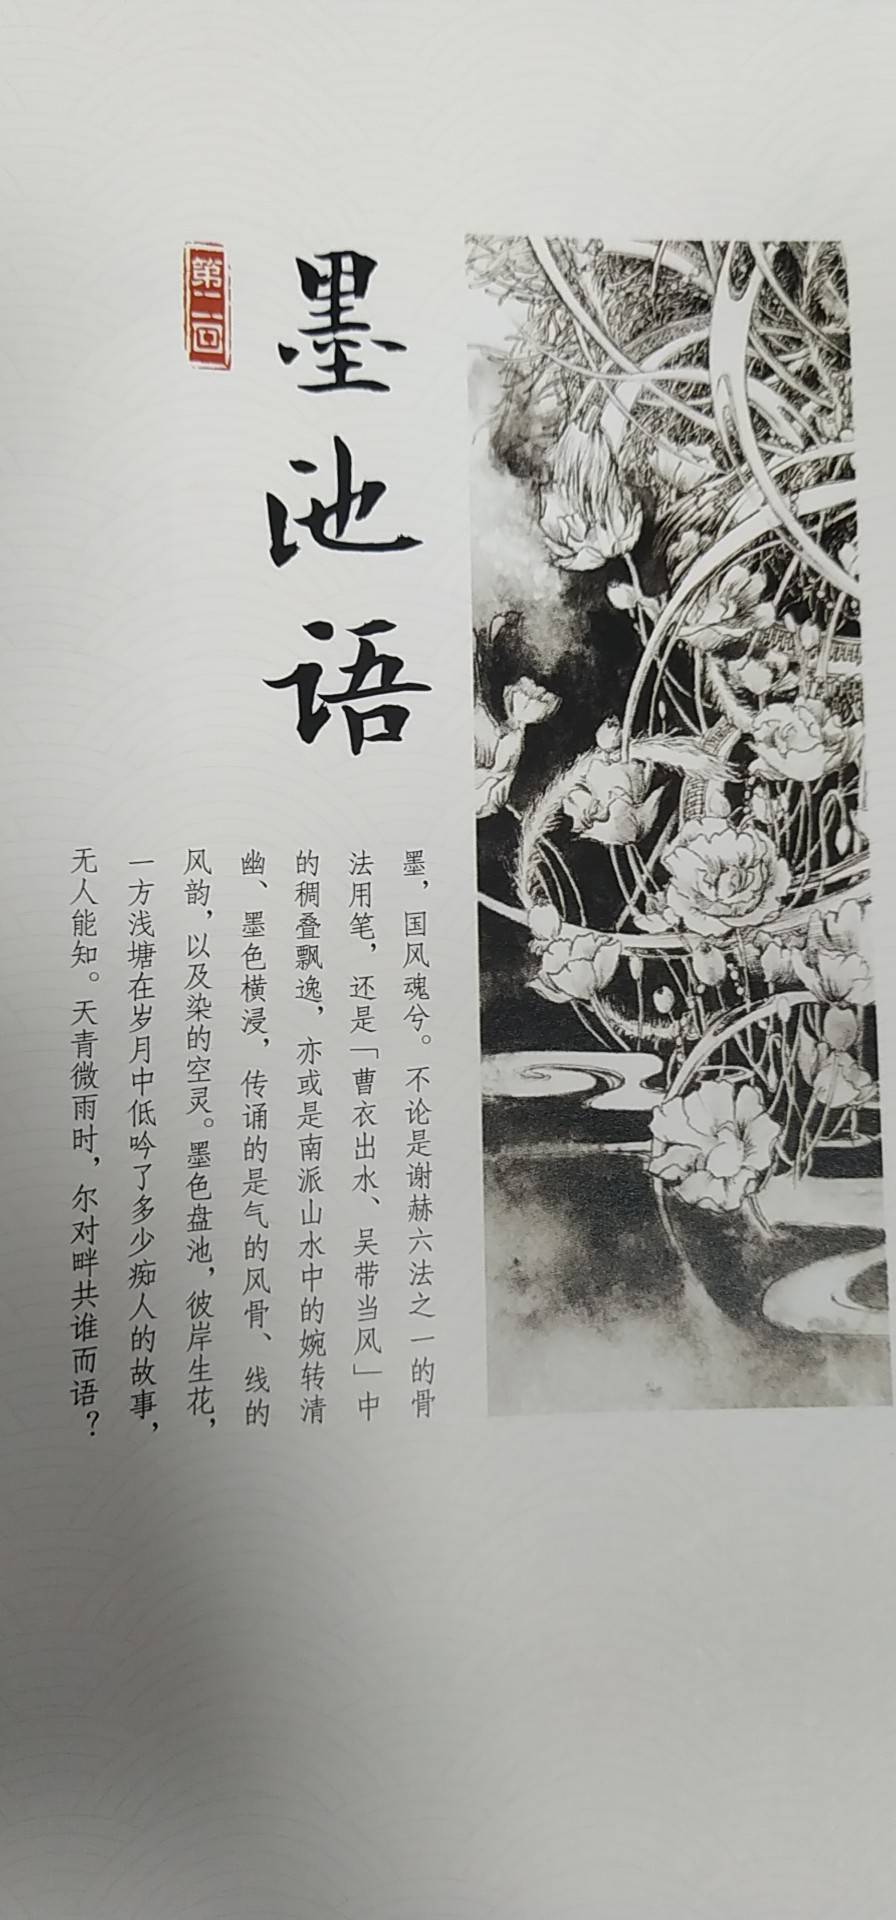 墨池语
第二回
墨，国风魂兮。不论是谢赫六法之一的骨
法用笔，还是「曹衣出水、吴带当风」中
的稠叠飘逸，亦或是南派山水中的婉转清
幽、墨色横浸，传诵的是气的风骨、线的
风韵，以及染的空灵。墨色盘池，彼岸生花，
一方浅塘在岁月中低吟了多少痴人的故事，
无人能知。天青微雨时，尔对畔共谁而语？